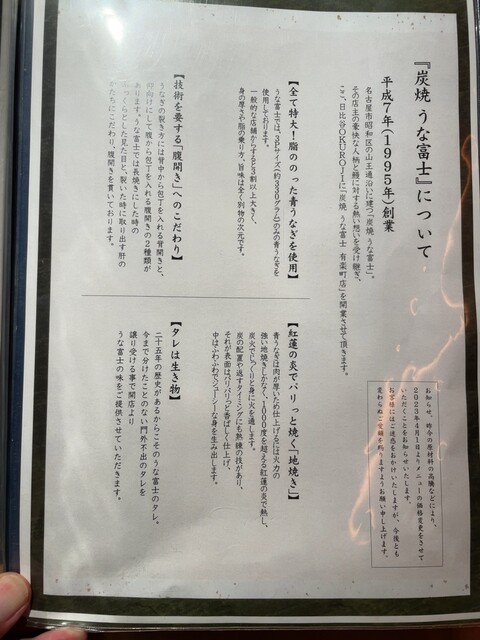 『炭焼 うな富士』について
平成7年(1995年)創業
名古屋市昭和区の山王通沿いに建つ「炭焼 うな富士」。
その店主の豪快な人柄と鰻に対する熱い想いを受け継ぎ、
ここ、日比谷OKUROJIに「炭焼 うな富士 有楽町店」を開業させて頂きます。
お知らせ、昨今の原材料の高騰などにより、
2023年4月1日よりメニューの価格変更をさせて
いただくことをお知らせいたします。
お客様にはご迷惑をおかけいたしますが、今後とも
変わらぬご愛顧を賜りますようお願い申し上げます。
【全て特大!脂ののった青うなぎを使用】
うな富士では、3Pサイズ(約330グラム)のみの青うなぎを
使用しております。
一般的な店舗からすると3割以上大きく、
身の厚さや脂の乗り方、旨味は全く別物の次元です。
【紅蓮の炎でパリっと焼く「地焼き」】
青うなぎは肉が厚いため仕上げるには火力の
強い地焼きしかなく、1000度を超える紅蓮の炎で熱し、
炭火でじっくりと身に火を通します。
炭の配置や返すタイミングにも熟練の技があり、
それが表面はパリパリっと香ばしく仕上げ、
中はふわふわでジューシーな身を生み出します。
【技術を要する「腹開き」へのこだわり】
うなぎの裂き方には背中から包丁を入れる背開きと、
仰向けにして腹から包丁を入れる腹開きの2種類が
あります。うな富士では長焼きにした時の
ふっくらとした見た目と、裂いた時に取り出す肝の
かたちにこだわり、腹開きを貫いております。
【タレは生き物】
二十五年の歴史があるからこそのうな富士のタレ。
今まで分けたことのない門外不出のタレを
譲り受ける事で開店より
うな富士の味をご提供させていただきます。